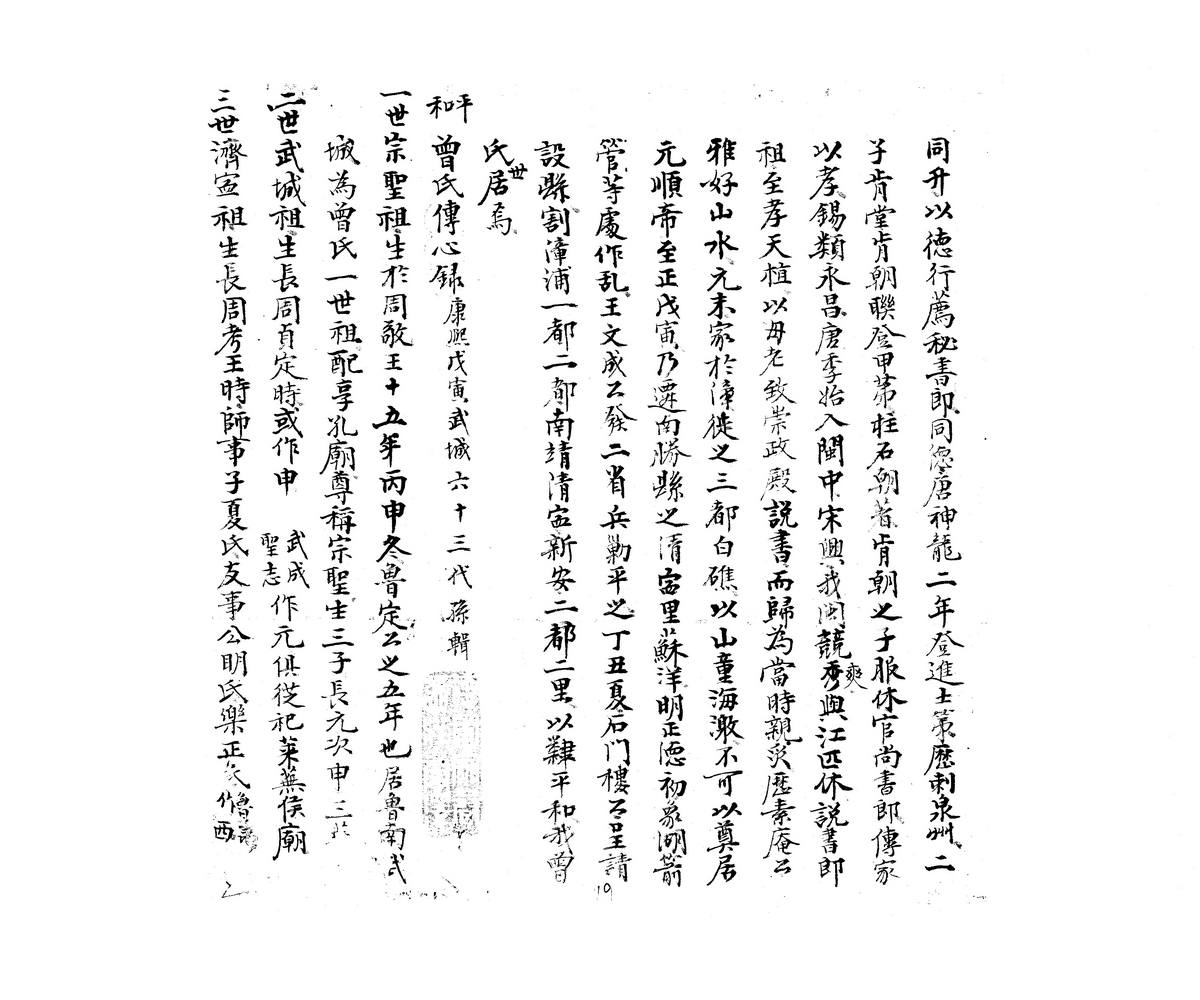 同升以德行薦秘書郎同德唐神龍二年登進士第歷刺泉州二
子肯堂肯朝聯登甲第柱石朝著肯朝之子服休官尚書郎傳家
以孝錫類永昌唐季始入閩中宋興我閩競爽秀與江匹休說書郎
祖至孝天植以母老致崇政殿說書而歸為當時親炙歷素庵公
雅好山水元末家於漳徙之三都白礁以山童海潡不可以奠居
元順帝至正戊寅乃遷南勝縣之清寍里蘇洋明正德初象湖箭
管等處作乱王文成公發二省兵勦平之丁丑夏后门樓公呈請
設縣割漳浦一都二都南靖清寍新安二都二里以隸平和我曾
氏世居焉
平和
曾氏傳心録康熙戊寅武城六十三代孫輯
一世宗聖祖生於周敬王十五年丙申冬魯定公之五年也居魯南武
城為曾氏一世祖配享孔廟尊稱宗聖生三子長元次申三
二世武城祖生長周貞定時或作申 武成聖志 作元俱從祀萊蕪侯廟
三世濟寍祖生長周考王時師事子夏氏友事公明氏樂正氏作西
19